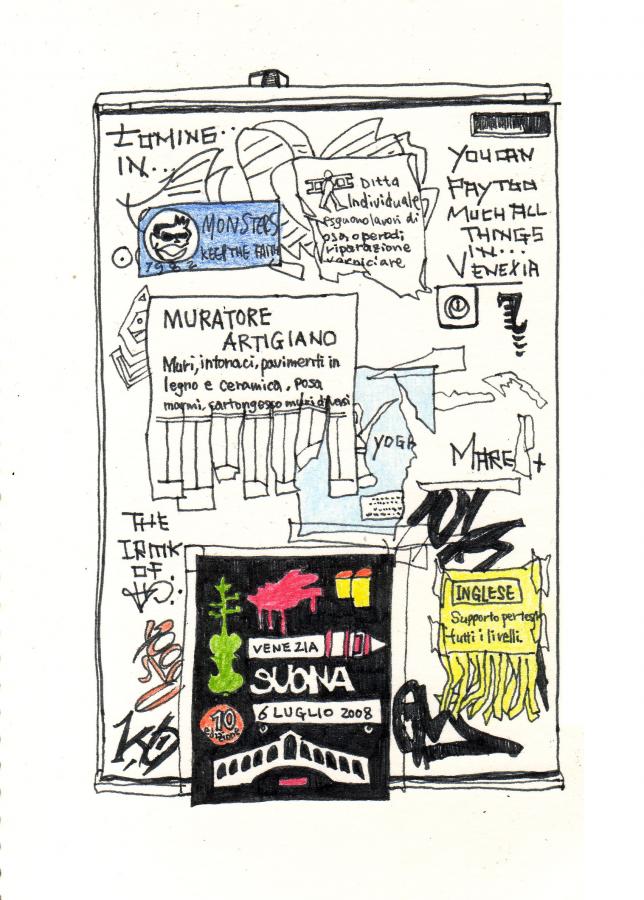 COMINE..
IN...
YOU CAN
PAY TOO
MUCH ALL
THINGS
IN...
VENEXIA
Ditta
Individuale
esguono lavori di
posa opere di
riparazione
verniciare
MONSTERS
KEEP THE FAITH
1982
MURATORE
ARTIGIANO
Muri, intonaci, pavimenti in
legno e ceramica, posa
marmi, cartongesso muri diversi
YOGA
MARE
THE
OF
INGLESE
Supporto per tesi
tutti i livelli.
VENEZIA
SUONA
10
edizione
6 LUGLIO 2008